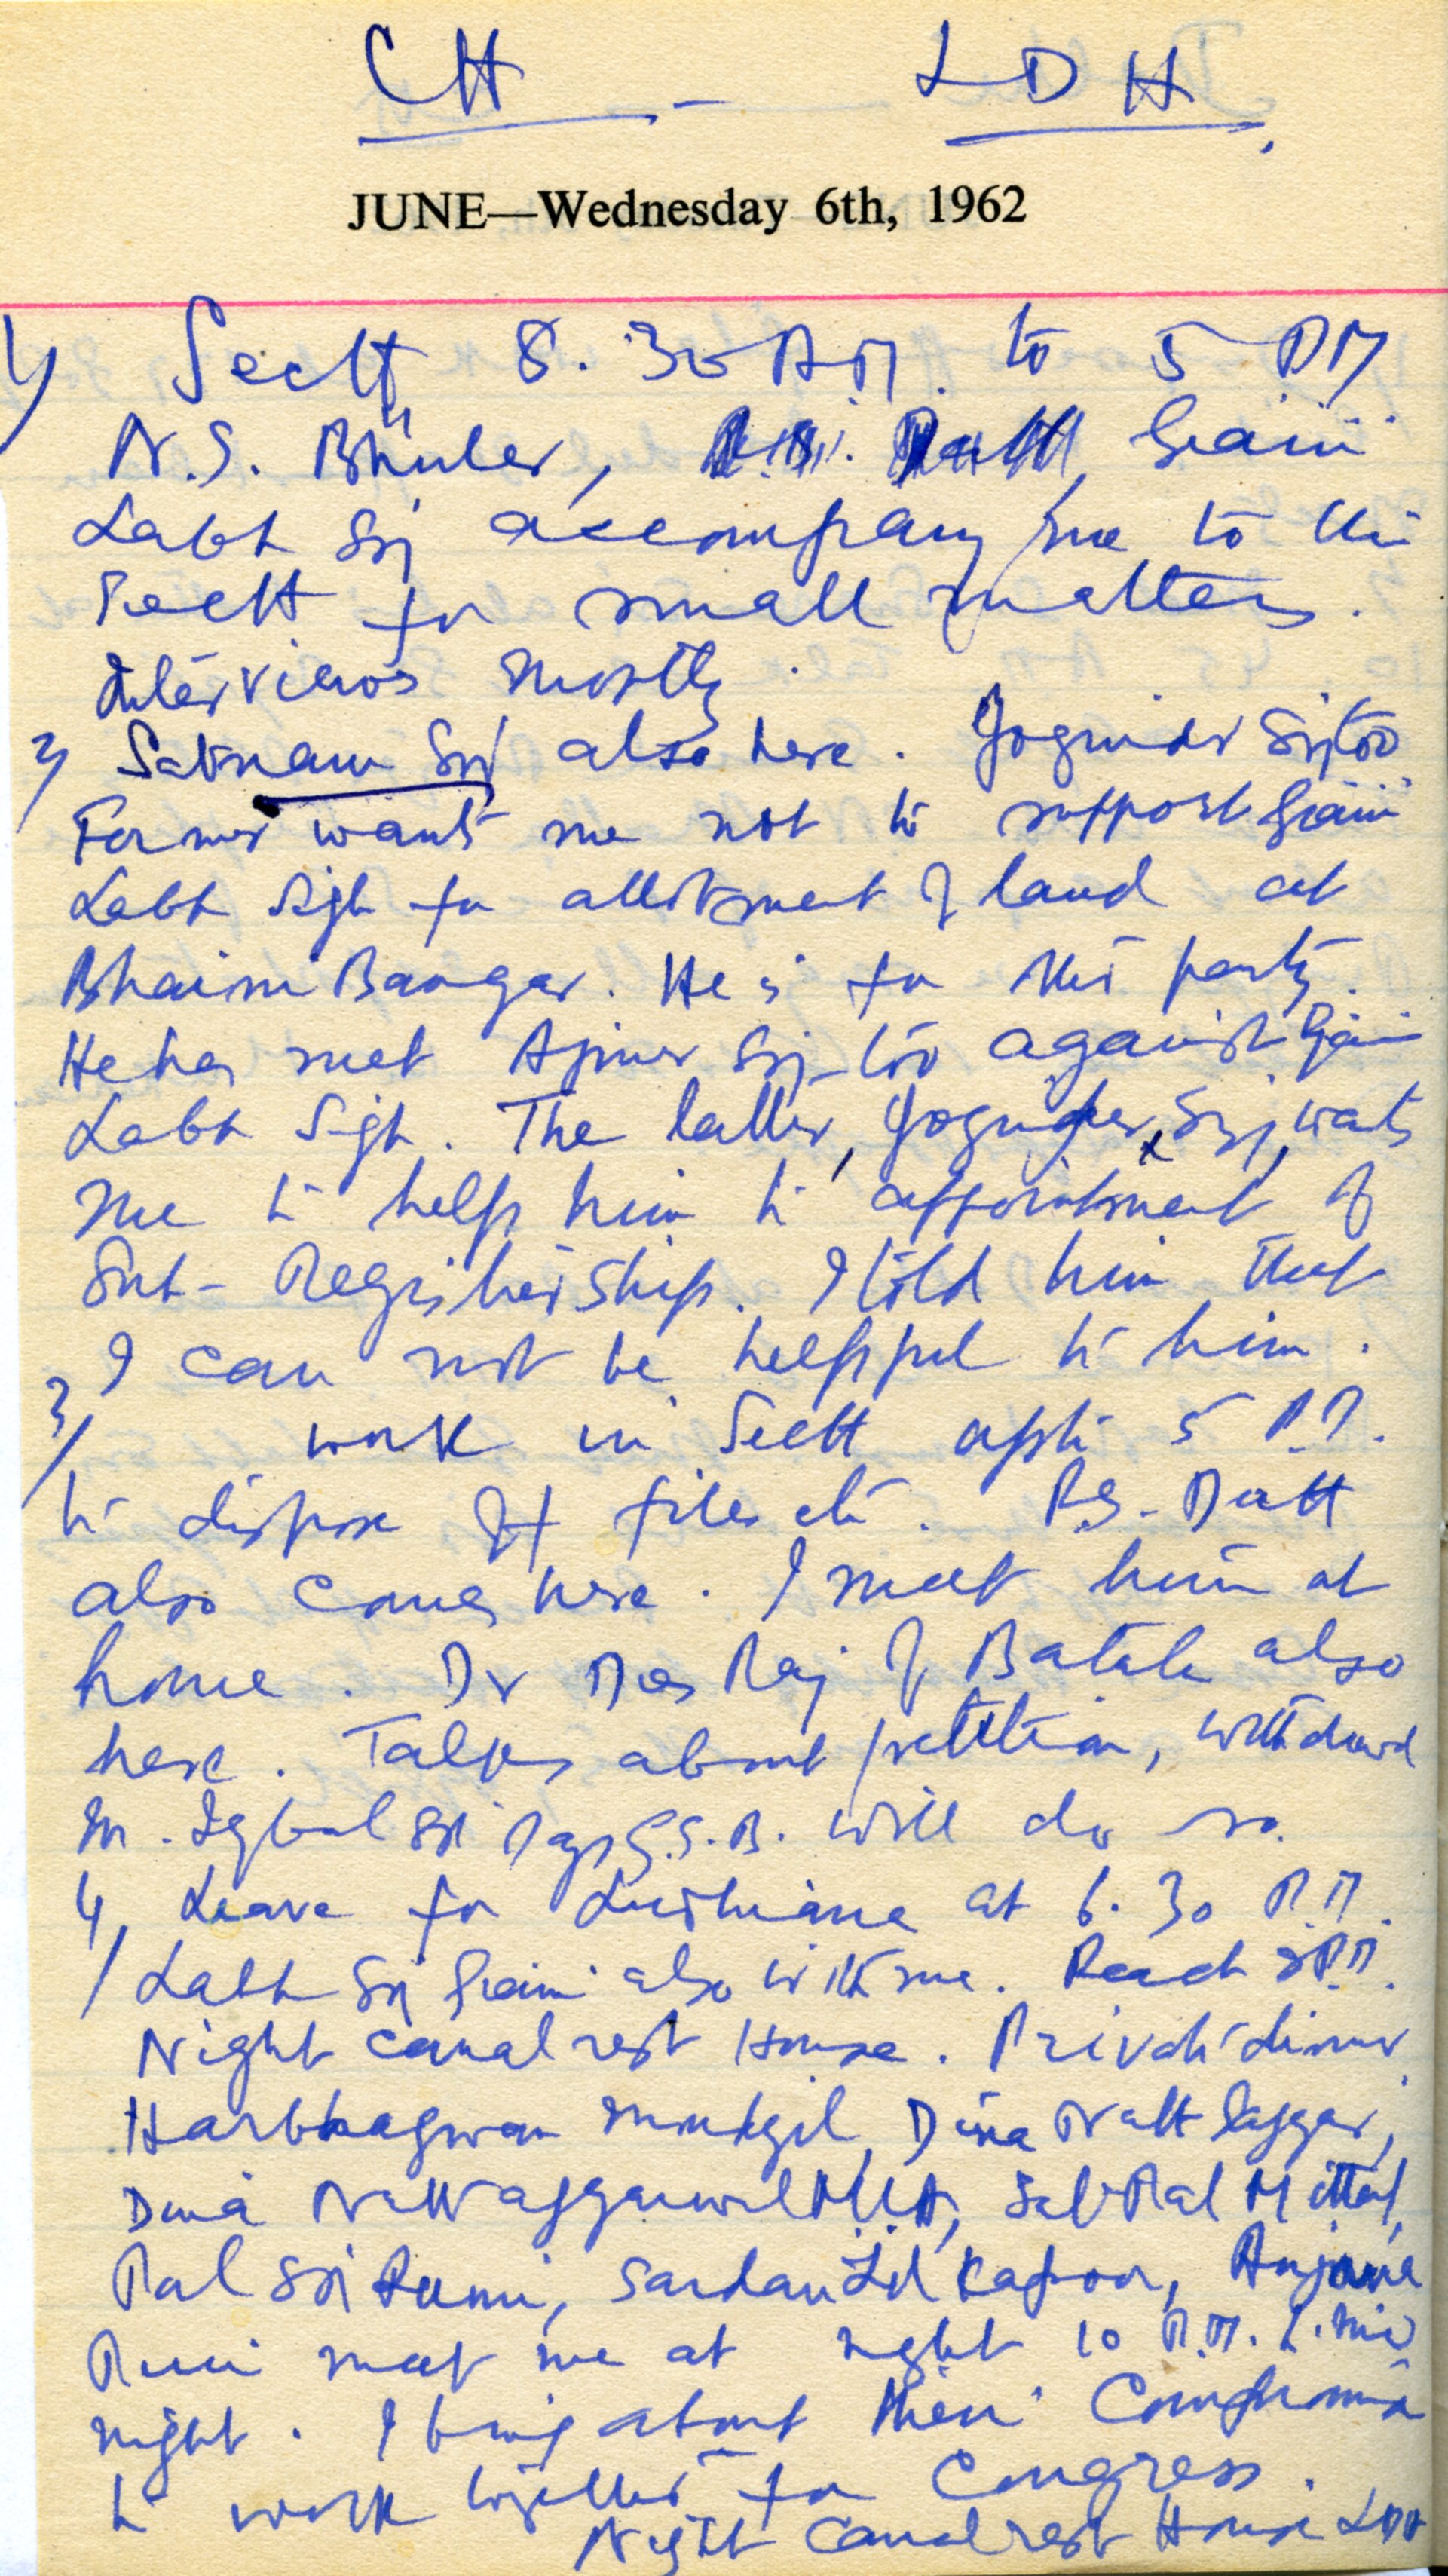 CH - LDH
JUNE—Wednesday 6th, 1962
1/ Sectt 8.30 AM. to 5 PM
N.S. Bhuler, Giani
Labh Sg accompany me to the
Sectt for small matters.
Interviews mostly.
2/ Satnam Sg also here. Joginder Sg too
Former wants me not to support Giani
Labh Sigh for allotment of land at
Bhaini Bangar. He is for this party.
He has met Ajmer Sg too against Giani
Labh Sigh. The latter, Joginder Sg, wants
me to help him to appointment of
Sub-Registrarship. I told him that
I can not be helpful to him.
3/ work in Sectt after 5 P.M.
to dispose off files etc. P.S. Datt
also comes here. I meet him at
home. Dr Des Raj of Batala also
here. Talks about petition, withdrawl
M. Iqbal Sg G.S.B. will do so.
4/ Leave for Ludhiana at 6.30 P.M.
Labh Sg Giani also with me. Reach 8 P.M.
Night canal rest House. Private dinner
Harbhagwan Mudgil, Dina Natt Jaggar,
Dina Natt Aggarwal MLA, Sat Pal Mittal,
Pal Sg Rumi, Sardari Lal Kapoor,
meet me at night 10 P.M. to mid
night. I bring about their Compromise
to work together for Congress.
Night Canal rest House LDH